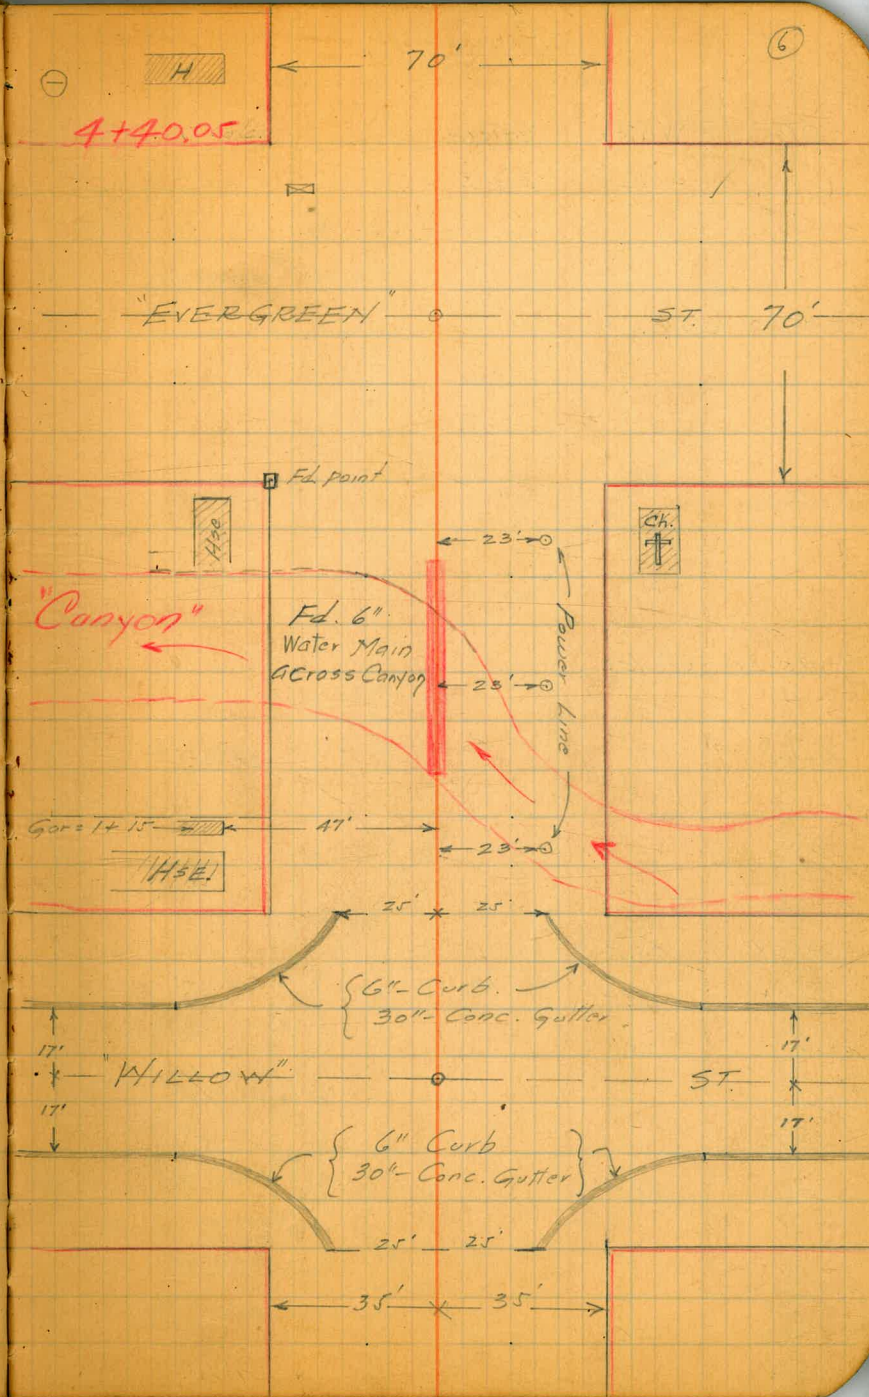 6
70'
H
4+40.05
"EVERGREEN" ST. 70'
Fd. point
Hse
Ch.
23'
"Canyon"
Fd. 6"
Water Main
across Canyon
23'
Power Line
47'
23'
HSE.
25' 25'
6"- Curb
30"- Conc. Gutter
17' 17'
"WILLOW" ST.
17' 17'
6" Curb
30"- Conc. Gutter
25' 25'
35' 35'